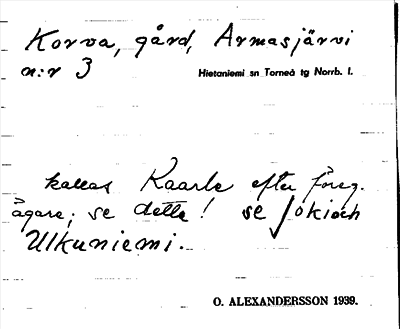 Korva, gård, Armasjärvi
n:r 3 Hietaniemi sn Torneå tg Norrb. l.
kallas Kaarle efter föreg.
ägare; se detta! se Jokioch
Ulkuniemi.
O. ALEXANDERSSON 1939.